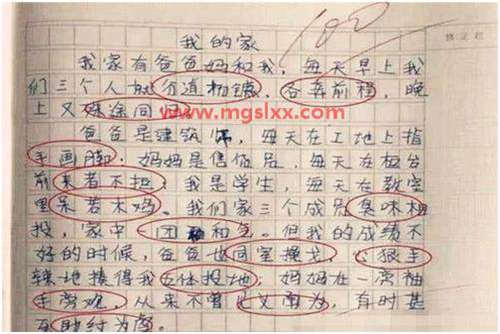 100
我的家
我家有爸爸妈和我，每天早上我
们三个人就分道扬镳，各奔前程，晚
上又殊途同归
www.mgslxx.com
爸爸是建筑师，每天在工地上指
手画脚，妈妈是售货员，每天在柜台
前来者不拒，我是学生，每天在教室
里呆若木鸡。我们家三个成员臭味相
投，家中一团和气。但我的成绩不
好的时候，爸爸也同室操戈，心狠手
辣地揍得我五体投地，妈妈在一旁袖
手旁观，从来不曾见义勇为，有时甚
至助纣为虐